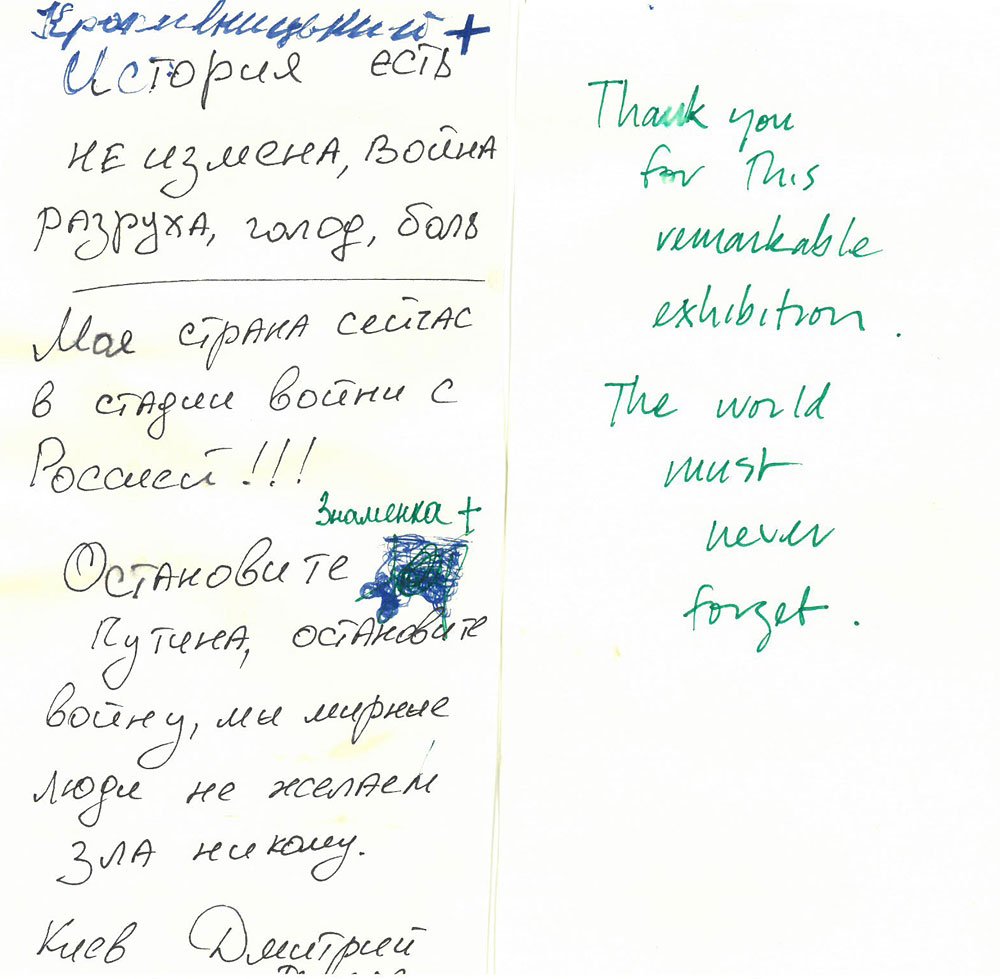 Кропивницький +
История есть
не измена, война
разруха, голод, боль
Мое страна сейчас
в стадии войни с
Россией!!!
Знаменка +
Остановите
Путина, остановите
войну, мы мирные
люди не желаем
зла никому.
Киев Дмитрий
Thank you
for This
remarkable
exhibition.
The world
must
never
forget.